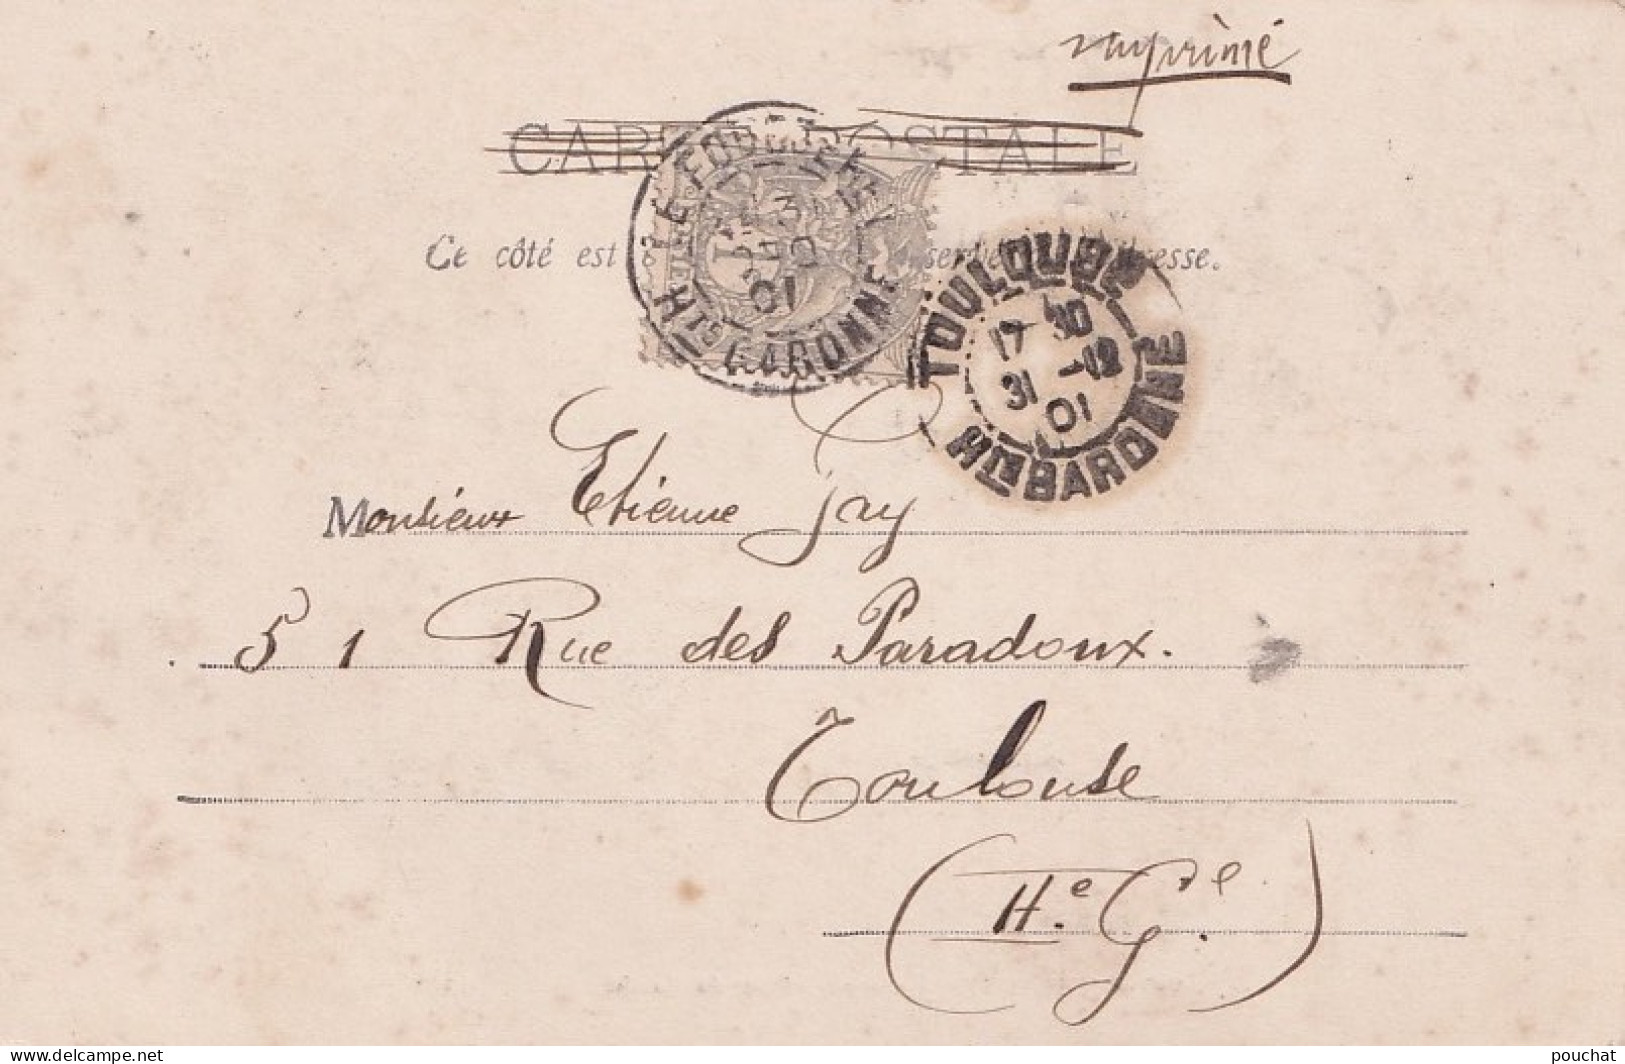 imprimé
CARTE POSTALE
Ce côté est
resse.
LE FOUSSERET
31
01
Hte GARONNE
TOULOUSE
17-30
31 -12
01
Hte GARONNE
Monsieur Etienne Jay
51 Rue des Paradoux.
Toulouse
(He. Gne.)
delcampe.net
pouchat